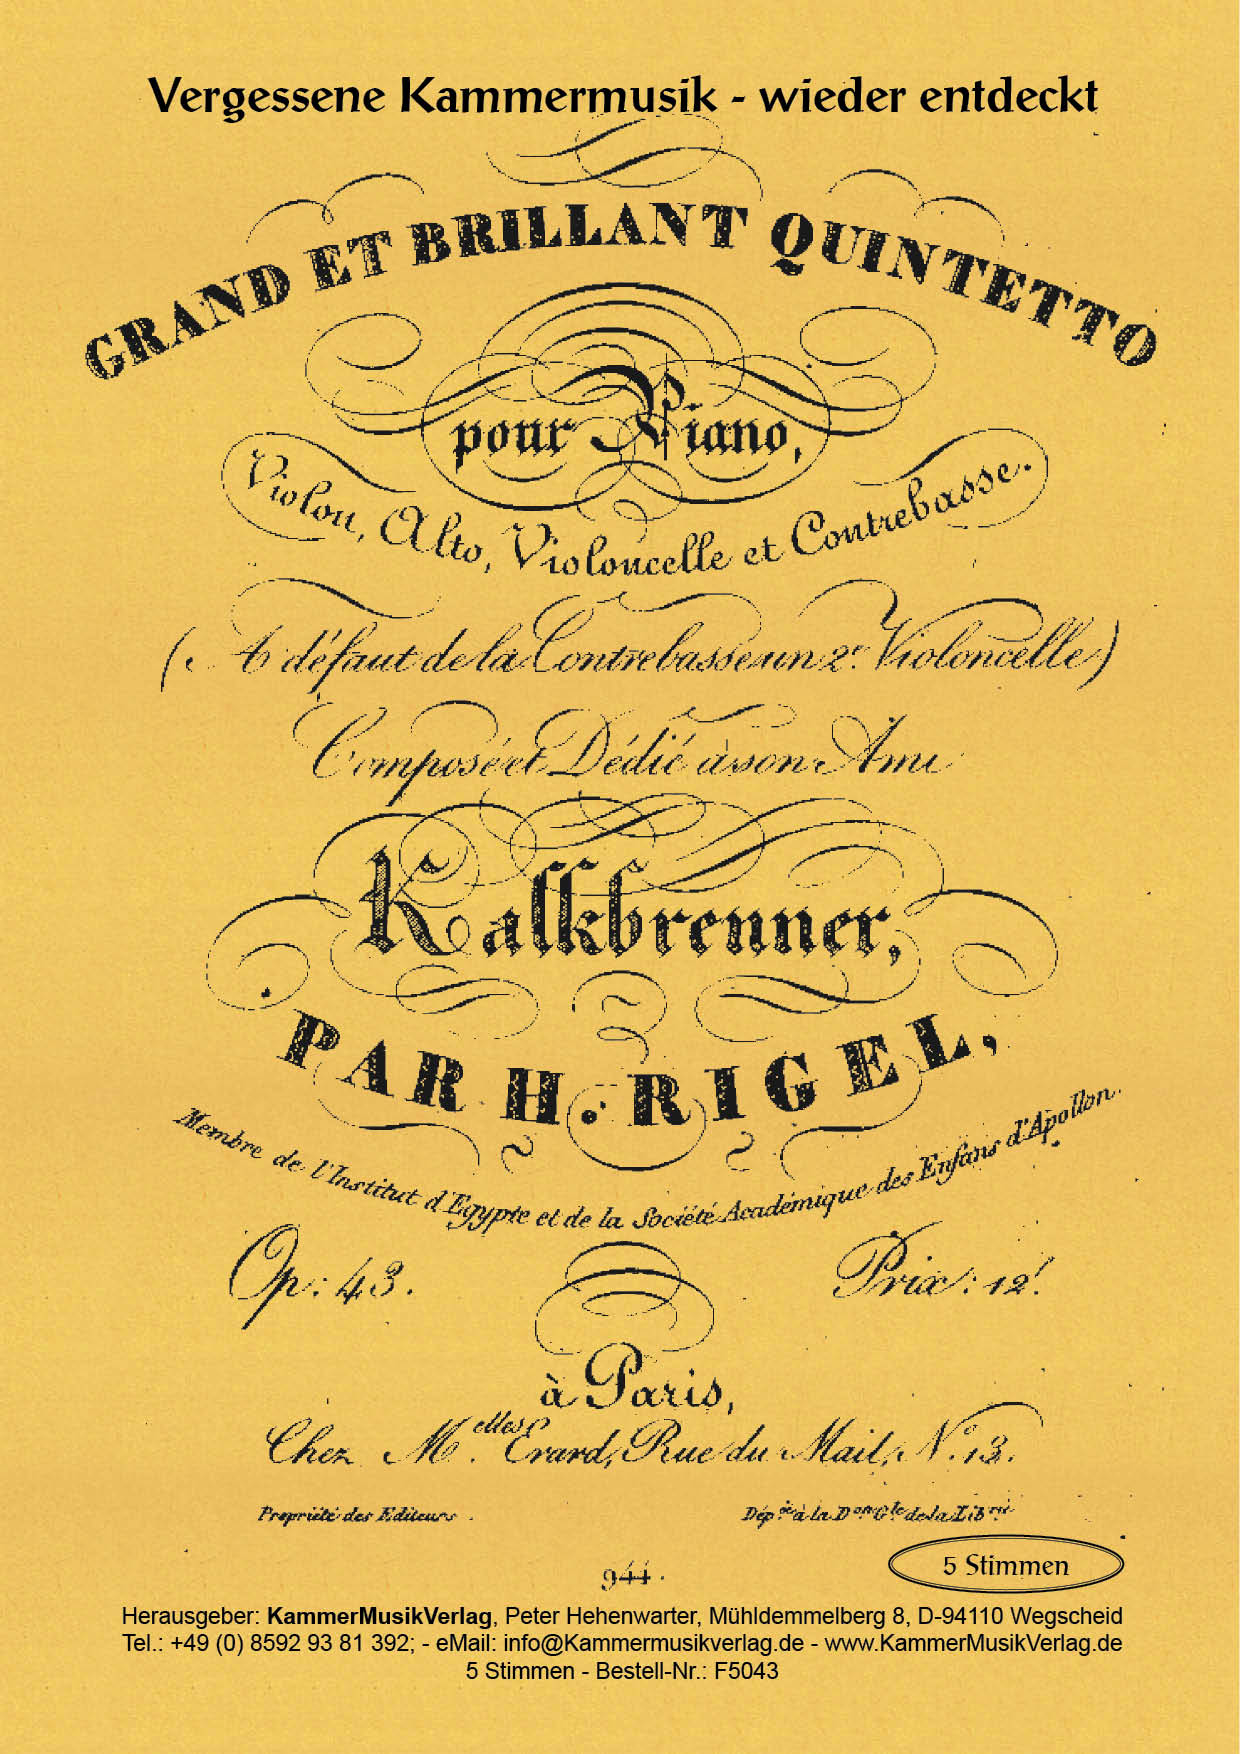 Vergessene Kammermusik - wieder entdeckt
GRAND ET BRILLANT QUINTETTO
pour Piano,
Violon, Alto, Violoncelle et Contrebasse.
(A défaut de la Contrebasse un 2e. Violoncelle)
Composé et Dédié à son Ami
Kalkbrenner,
PAR H. RIGEL,
Membre de l'Institut d'Egypte et de la Société Académique des Enfans d'Apollon.
Op: 43.
Prix: 12f
à Paris,
Chez M.elles Erard, Rue du Mail, No. 13.
Propriété des Editeurs.
Dép.ée à la Don Gle de la Librie
944.
5 Stimmen
Herausgeber: KammerMusikVerlag, Peter Hehenwarter, Mühldemmelberg 8, D-94110 Wegscheid
Tel.: +49 (0) 8592 93 81 392; - eMail: info@Kammermusikverlag.de - www.KammerMusikVerlag.de
5 Stimmen - Bestell-Nr.: F5043